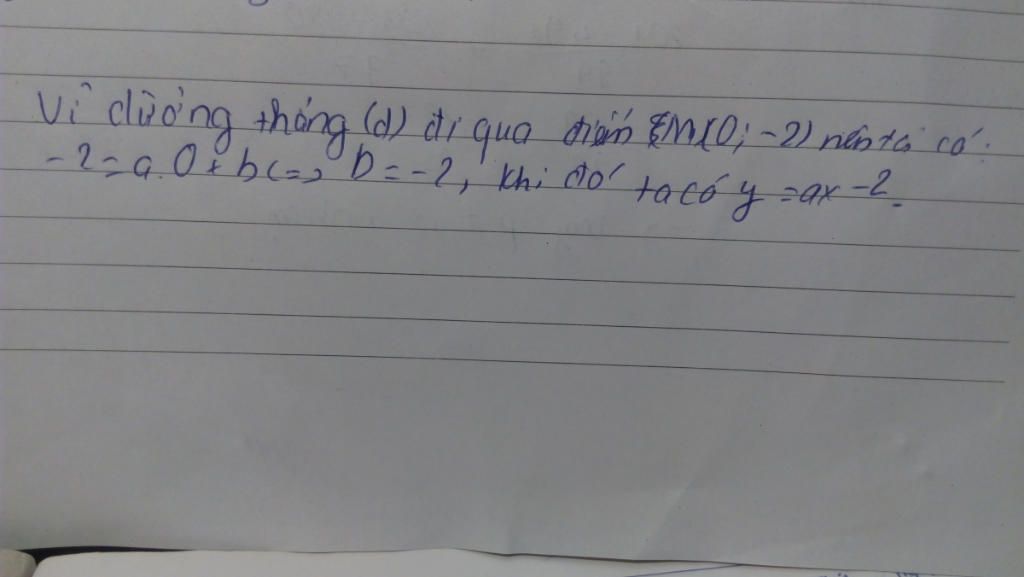 Vì đường thẳng (d) đi qua điểm M(0; -2) nên ta có:
-2 = a.0 + b <=> b = -2, khi đó ta có y = ax -2.